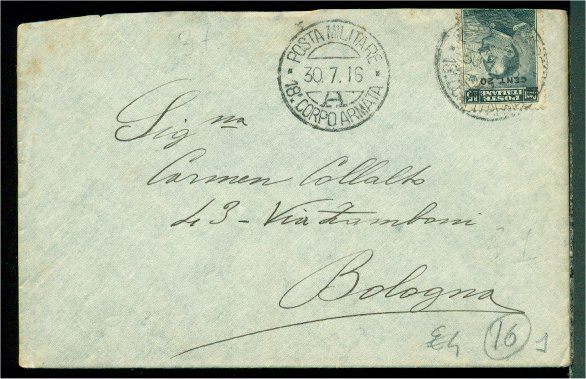 POSTA MILITARE
30.7.16
A
18º CORPO ARMATA
CENT. 20
POSTE
ITALIANE
Signa
Carmen Collalto
43 - Via Zamboni
Bologna
16